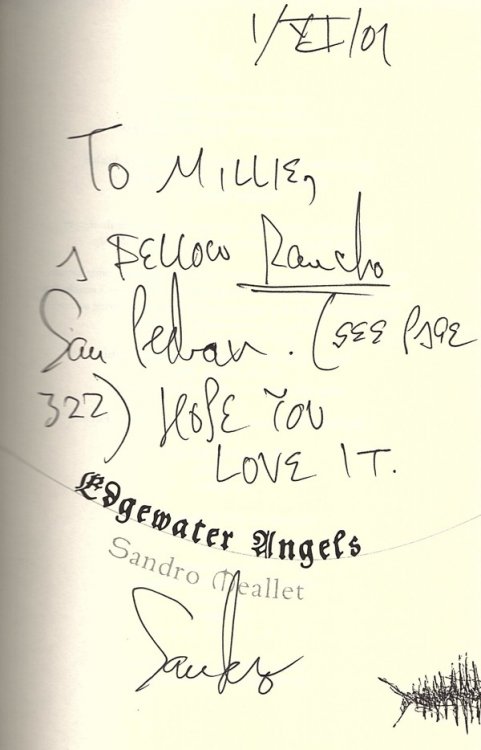 1/VI/01
TO MILLIE,
A FELLOW Rancho
San Pedran. (SEE PAGE
322) HOPE YOU
LOVE IT.
Edgewater Angels
Sandro Meallet
Sandro